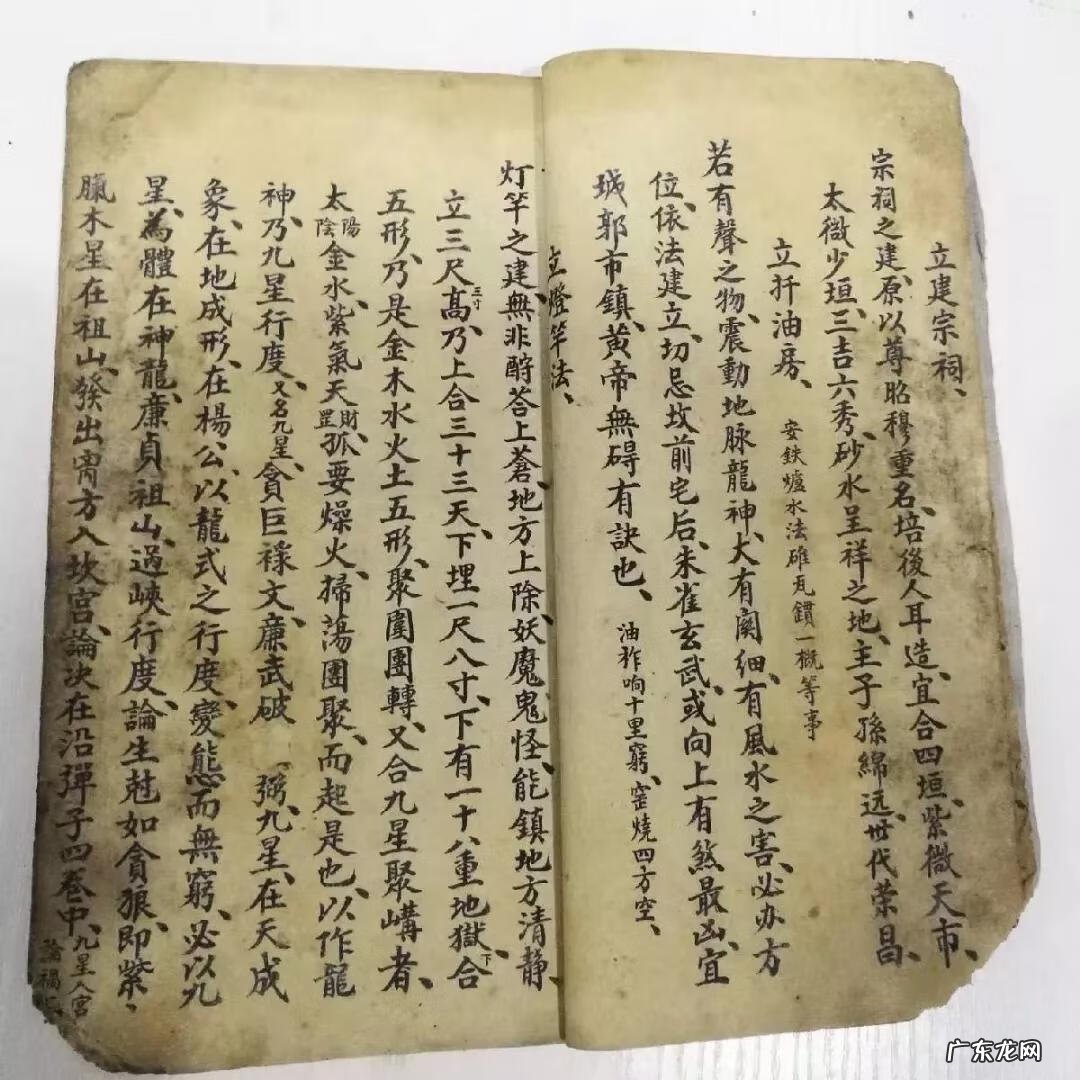 立建宗祠、
宗祠之建、原以尊昭穆重名、培後人耳造、宜合四垣、紫微天市、
太微少垣、三吉六秀、砂水呈祥之地、主子孫綿远、世代荣昌、
立扦油房、安鉄爐水法碓瓦鑽一概等事
若有聲之物、震動地脉龍神、大有関细、有風水之害、必办方
位、依法建立、切忌坟前宅后、朱雀玄武、或向上有煞最凶、宜
城郭市鎮、黄帝無碍有訣也、油榨响十里窮、窑烧四方空、
立燈竿法、
灯竿之建、無非酧荅上蒼、地方上除妖魔鬼怪、能鎮地方清静、
立三尺三寸高、乃上合三十三天、下埋一尺八寸、下有一十八重地獄、下合
五形、乃是金木水火土五形、聚圍團轉、又合九星聚講者、
太陽陰金水、紫氣天財罡孤要燥火、掃荡團聚、而起是也、以作龍
神、乃九星行度、又名九星、貪巨祿文、廉武破弼、九星、在天成
象、在地成形、在楊公、以龍式之行度、變態而無窮、必以九
星、為體在神龍、廉貞祖山、過峡行度、論生尅如貪狼、即紫、
臘木星在祖山、發出寅方入坎宫、論决在沿彈子四卷中、九星入宫
論禍
广东龙网